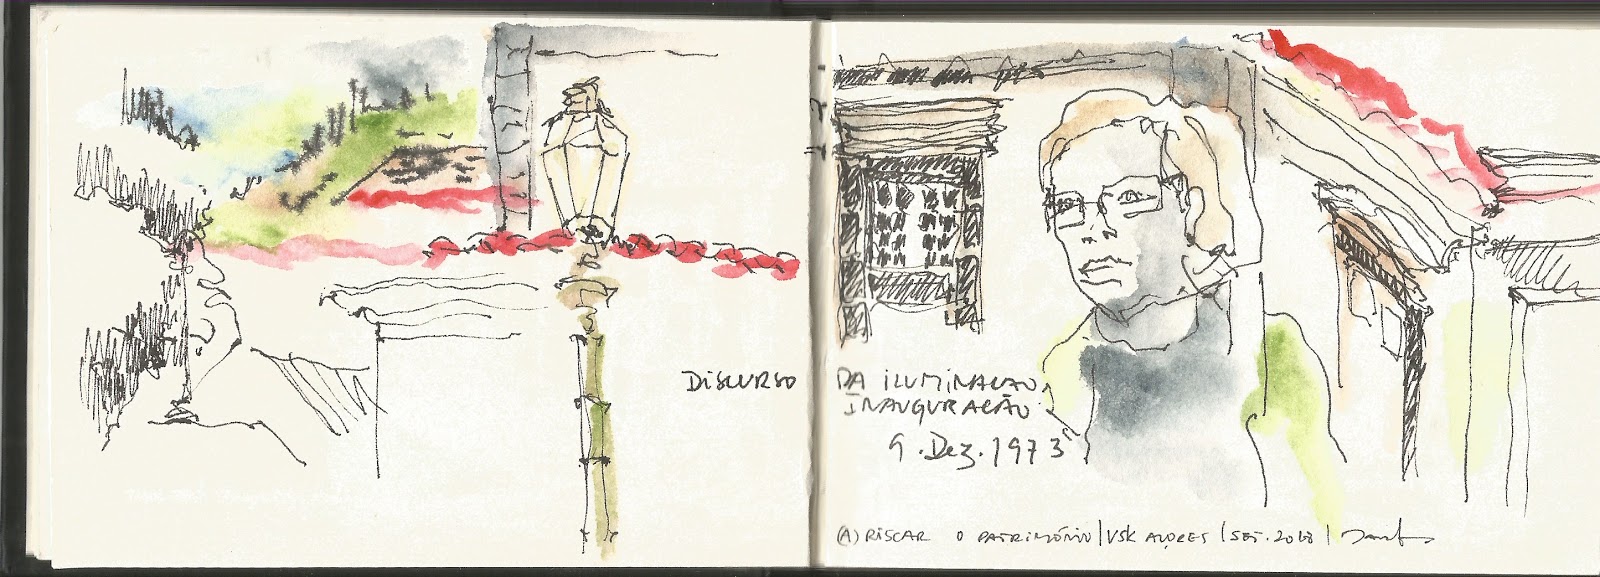 DISCURSO DA ILUMINAÇÃO
INAUGURAÇÃO
9.Dez.1973
(A) RISCAR O PATRIMÓNIO | USK AÇORES | SET. 2018 |